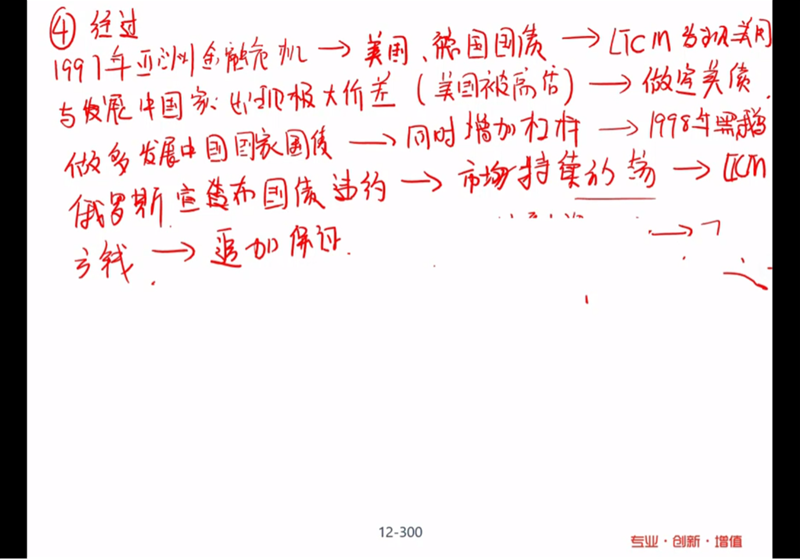 ④ 经过
1997年亚洲金融危机 → 美国、德国国债 → LTCM发现美国
与发展中国家出现极大价差（美国被高估）→ 做空美债.
做多发展中国国家国债 → 同时增加杠杆 → 1998年黑天鹅
俄罗斯宣布国债违约 → 市场持续 → LTCM
亏钱. → 追加保证.
12-300
专业·创新·增值